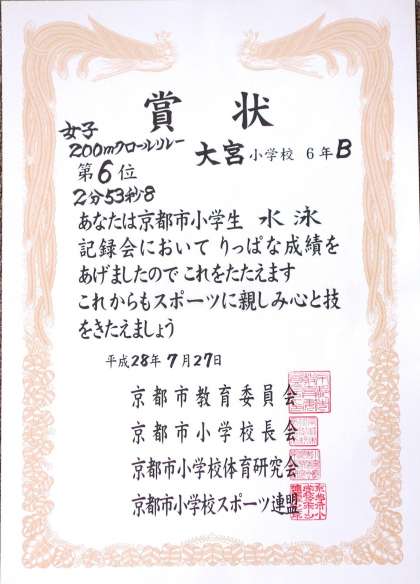 賞状
女子
200mクロールリレー
大宮小学校 6年B
第6位
2分53秒8
あなたは京都市小学生 水泳
記録会において りっぱな成績を
あげましたので これをたたえます
これからもスポーツに親しみ心と技
をきたえましょう
平成28年7月27日
京都市教育委員会
京都市小学校長会
京都市小学校体育研究会
京都市小学校スポーツ連盟